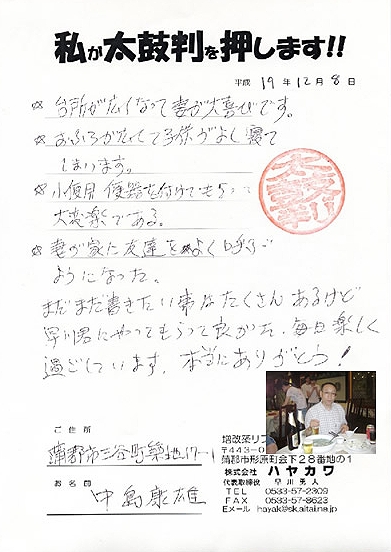 私が太鼓判を押します!!
平成 19年12月8日
☆ 台所が広くなって妻が大喜びです。
☆ おふろが広くて子供がよく寝て
しまいます。
☆ 小便用便器を付けてもらって
大変楽である。
☆ 妻が家に友達をよく呼ぶ
ようになった。
まだまだ書きたい事はたくさんあるけど
早川君にやってもらって良かった。毎日楽しく
過ごしています。本当にありがとう!
太鼓判
ご住所
蒲郡市三谷町築地17-1
お名前
中島康雄
増改築リフ
〒443-0
蒲郡市形原町会下28番地の1
株式会社 ハヤカワ
代表取締役 早川勇人
TEL 0533-57-2309
FAX 0533-57-8623
Eメール hayak@sk.aitai.ne.jp